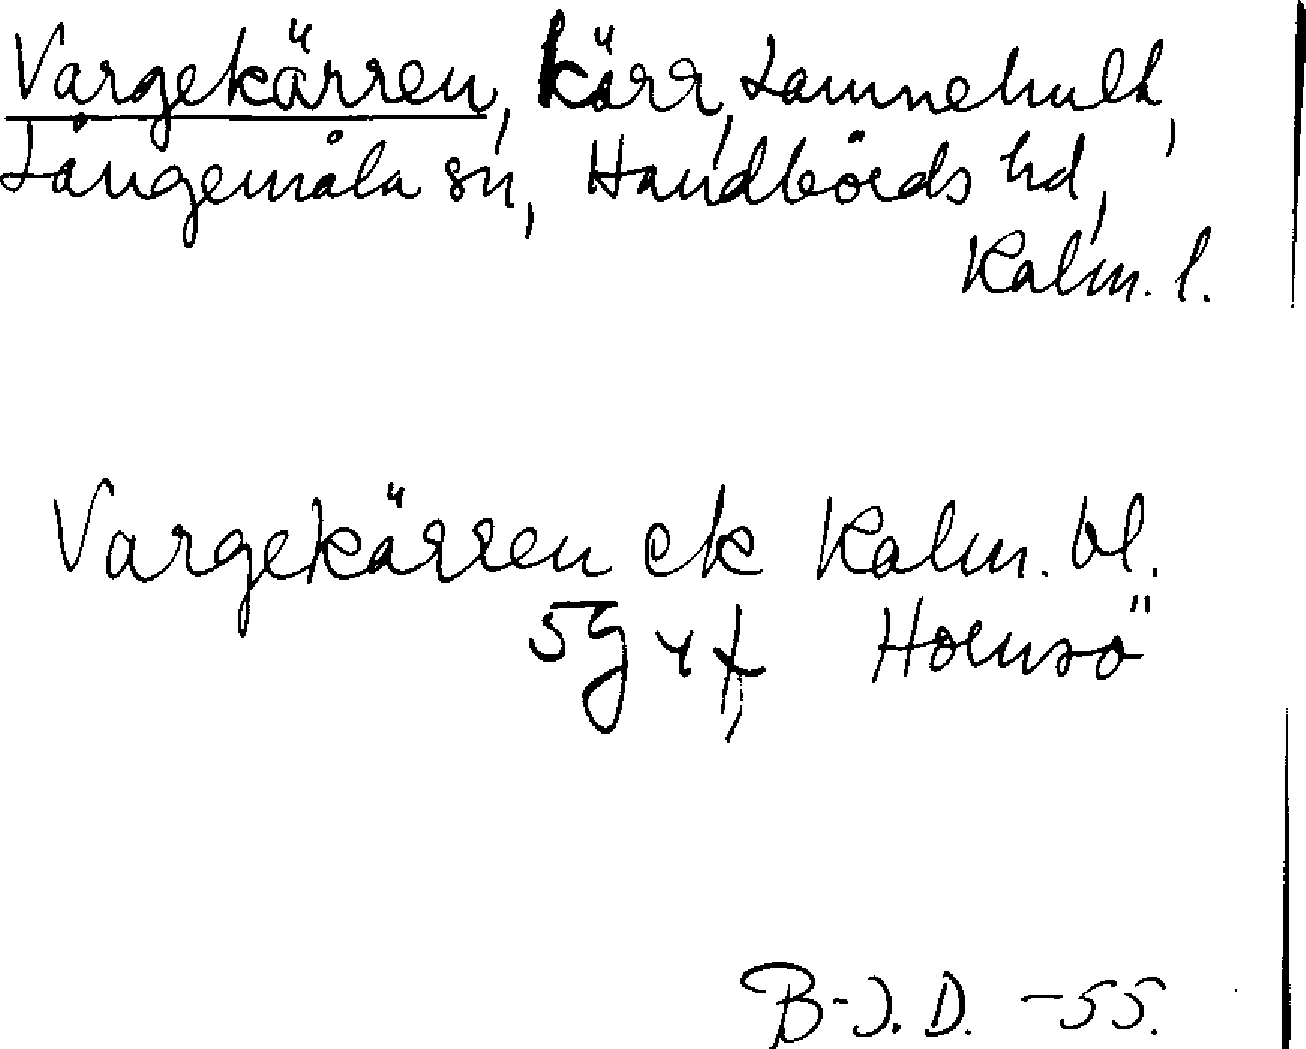 Vargekärren, kärr, Lamnehult,
Långemåla sn, Handbörds hd,
Kalm. l.
Vargekärren ek Kalm. bl.
5g 4 f, Hornsö
B-J. D. -55.